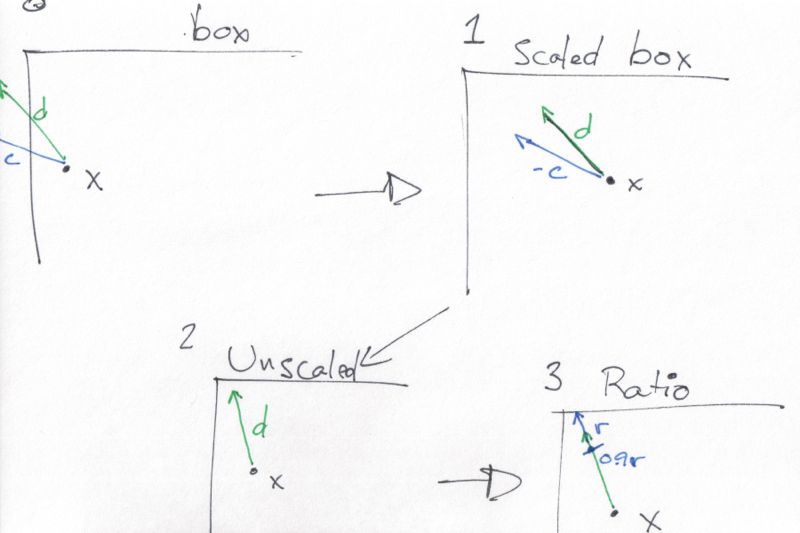 box
d
c
x
1
Scaled box
d
-c
x
2
Unscaled
d
x
3 Ratio
r
0.9r
x